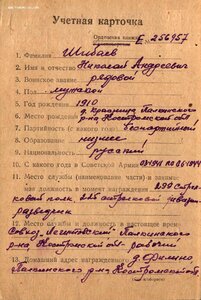 Учетная карточка
Орденская книжка Е 256957
1. Фамилия Шибаев
2. Имя и отчество Николай Андреевич
3. Воинское звание рядовой
4. Пол мужской
5. Год рождения 1910
6. Место рождения д. Палкинского
р-на Костромской обл.
7. Партийность (с какого года) беспартийный
8. Образование низшее
9. Национальность русский
10. С какого года в Советской Армии
11. Место службы (наименование части) и занимаемая
должность в момент награждения 299 стрелковый
полк 225 стрелковой дивизии
разведчик
12. Место службы и должность в настоящее время
Совхоз Палкинского
р-на Костромской обл. рабочий
13. Домашний адрес награжденного д. Филино
Палкинского р-на Костромской обл.